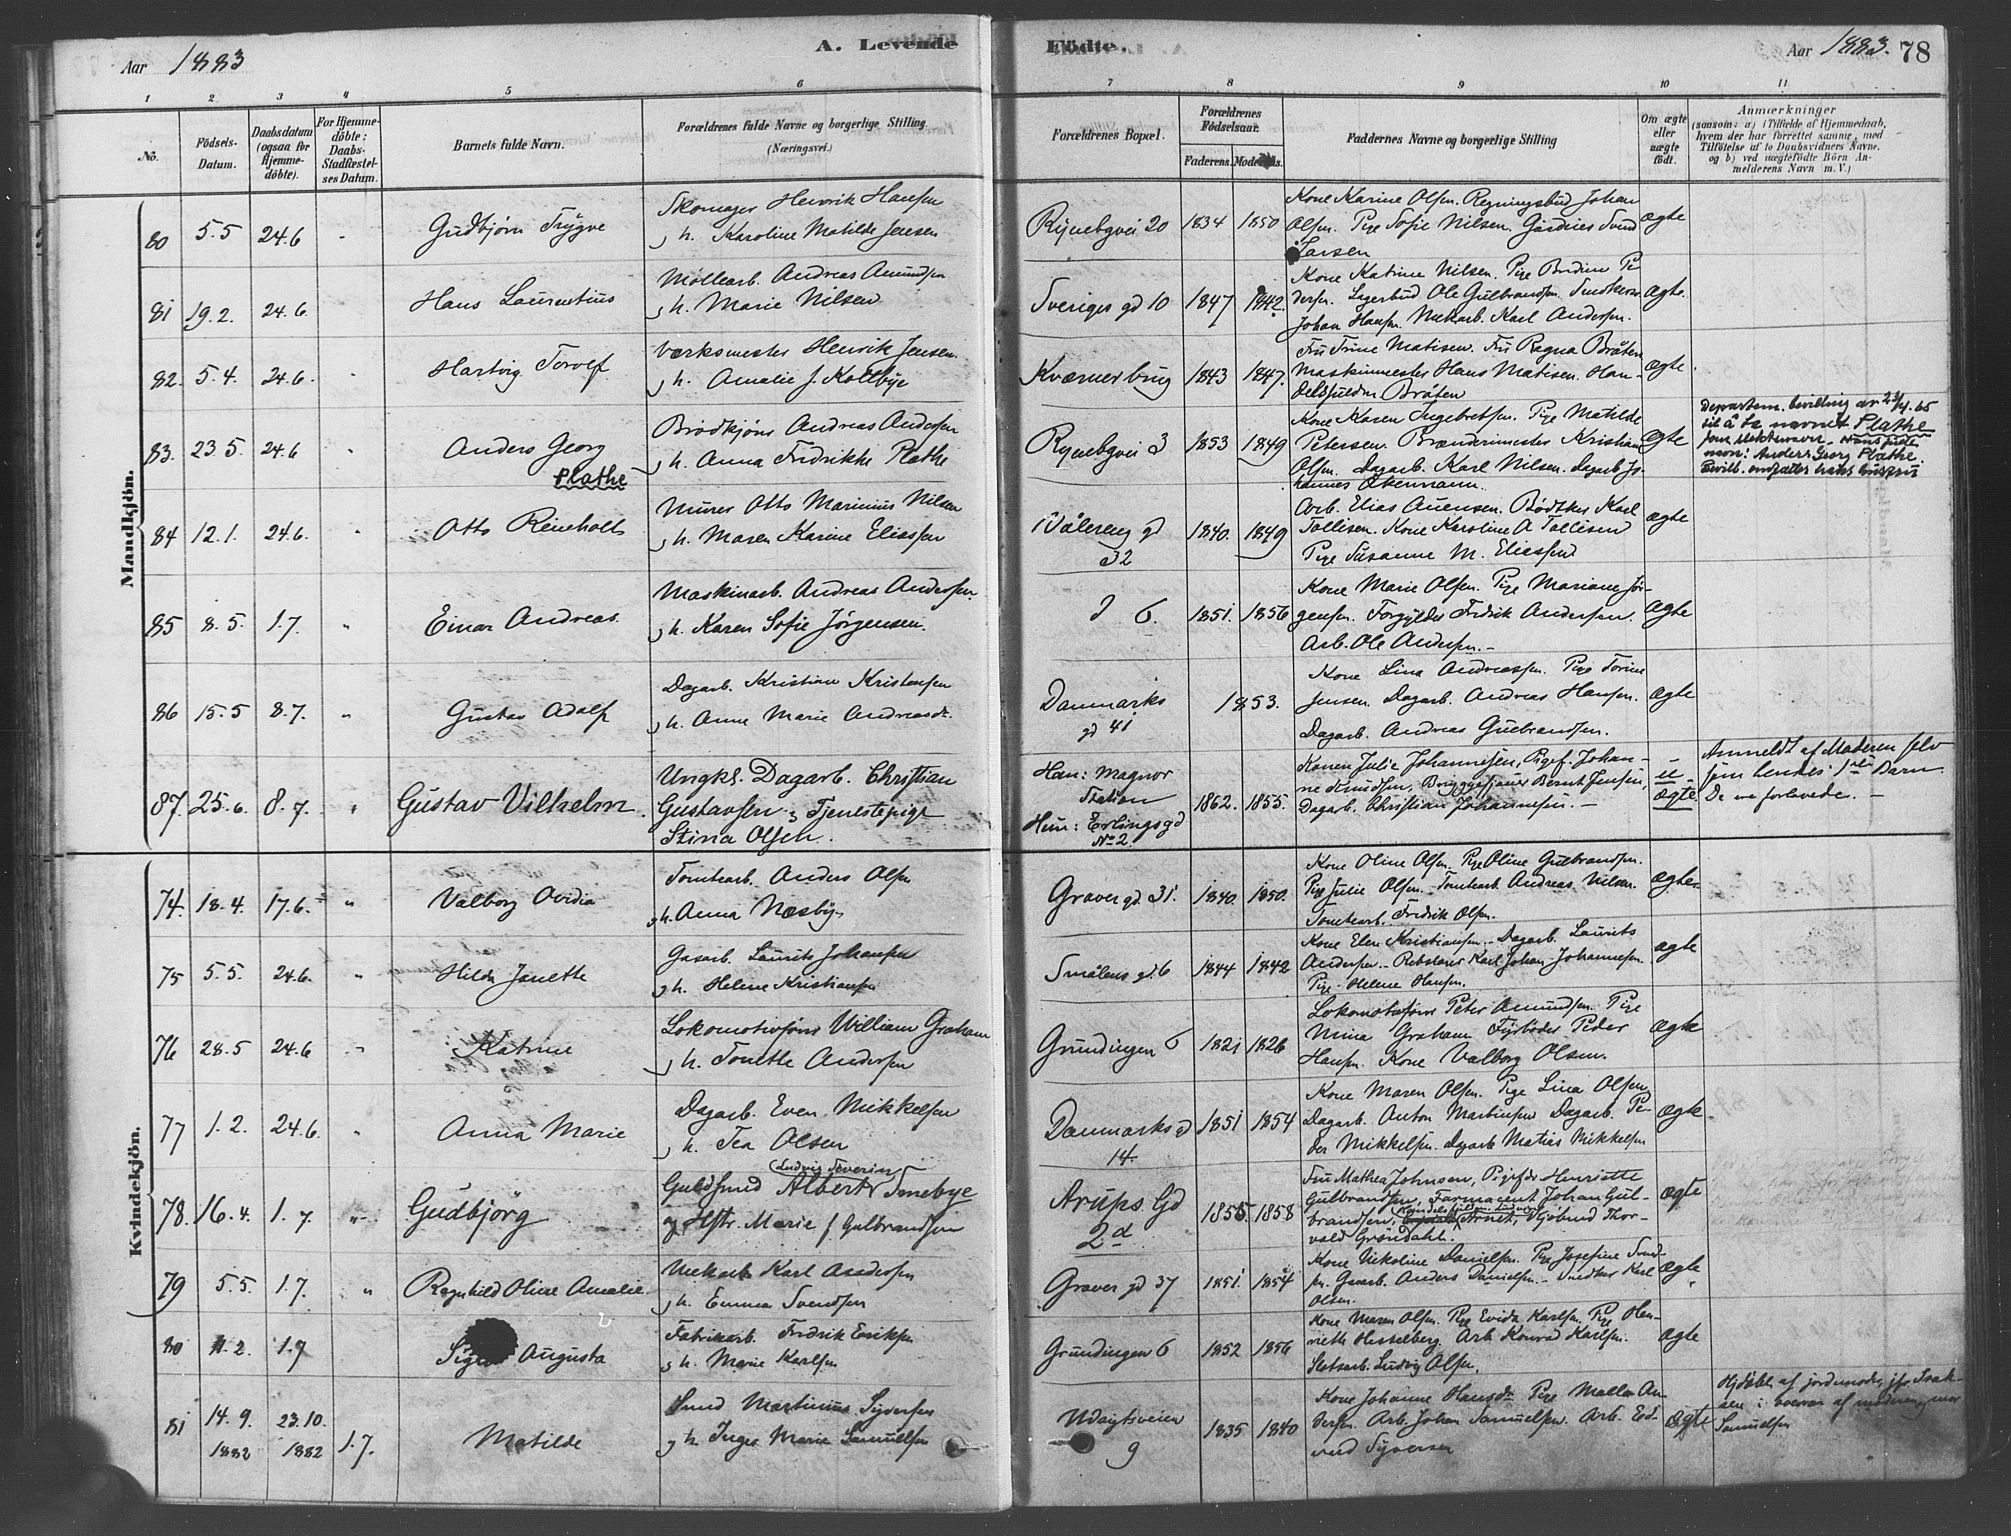 Aar 1883
A. Levende
Födte.
Aar 1883. 78
1 2 3 4 5 6 7 8 9 10 11
No.
Födsels-
Datum.
Daabsdatum
(ogsaa for
Hjemme-
döbte).
For Hjemme-
döbte:
Daabs-
Stadfæstel-
ses Datum.
Barnets fulde Navn.
Forældrenes fulde Navne og borgerlige Stilling
(Næringsvei.)
Forældrenes Bopæl.
Forældrenes
Födselsaar.
Faderens. Moderens.
Faddernes Navne og borgerlige Stilling
Om ægte
eller
uægte
født.
Anmærkninger
(saasom: a) i Tilfælde af Hjemmedaab,
hvem der har forrettet samme, med
Tilföielse af to Daabsvidners Navne.
og b) ved uægtefödte Börn An-
melderens Navn m. V.)
Mandkjön.
80 5.5 24.6 Gudbjørn Trygve
Skomager Henrik Hansen
h. Karoline Matilde Jensen
Rynebgvei 20 1834 1850
Kone Karine Olsen. Regningsbud Johan
Olsen. Pige Sofie Nilsen. Svend
Larsen
ægte
81 19.2. 24.6. Hans Laurentius
Møllearb. Andreas Amundsen
h. Marie Nilsen
Sveriges gd 10 1847 1842.
Kone Katrine Nilsen. Pige Bredine Pe-
dersen. Lagerbud Ole Gulbrandsen.
Johan Hansen. Mekarb. Karl Andersen.
ægte.
82. 5.4. 24.6. Hartvig Torolf
Værksmester Henrik Jensen.
h. Amalie f. Koltbye
Kværner brug 1843 1847.
Fru Trine Matisen. Fru Ragna Bråten
Maskinmester Hans Matisen. Han-
delsfuldm Bråten
ægte
83. 23.5. 24.6 Anders Georg
Plathe
Brødkjører Andreas Andersen
h. Anna Fredrikke Plathe
Rynebgvei 3 1853 1849
Kone Karen Ingebretsen. Pige Matilde
Petersen. Brændermester Kristian
Olsen. Dagarb. Karl Nilsen. Dagarb Jo-
hannes Åkermann.
ægte
Departem. bevilling av 23/4 65
til å ta navnet Plathe
som slektsnavn.
navn: Anders Georg Plathe.
Bevill. omfatter hans hustru
84 12.1. 24.6. Otto Reinholt
Murer Otto Marinius Nilsen
h. Maren Karine Eliassen
Vålereng gd
32
1840. 1849
Arb. Elias Auensen. Bødtker Karl
Tollisen. Kone Karoline A Tollisen
Pige Susanne M. Eliassen
ægte
85 8.5. 1.7. Einar Andreas.
Maskinarb. Andreas Andersen.
h. Karen Sofie Jørgensen.
6. 1851. 1856
Kone Marie Olsen. Pige Mariane Jør-
gensen. Forgylder Fredrik Andersen.
Arb. Ole Andersen.
ægte
86 15.5 8.7. Gustav Adolf
Dagarb. Kristian Kristensen
h. Anne Marie Andreasdr.
Danmarks
gd 41
1853.
Kone Lina Andreassen. Pige Torine
Jensen. Dagarb. Andreas Hansen.
Dagarb. Andreas Gulbrandsen.
ægte
87. 25.6. 8.7. Gustav Vilhelm.
Ungkl. Dagarb. Christian
Gustavsen, Tjenestepige
Stina Olsen.
Han: Magnor
Station
Hun: Erlingsgd
No 2.
1862. 1855.
Konen Julie Johannesen, Pigef. Johan-
ne Knudsen, Bryggesjauer Bernt Jensen,
Dagarb. Christian Johannesen.
u-
ægte
Anmeldt af Moderen selv
som hendes 1ste Barn.
De ere forlovede.
Kvindekjön.
74. 18.4. 17.6. Valborg Ovidia
Tomtearb. Anders Olsen
h. Anna Næsby.
Graver gd. 31. 1840. 1850.
Kone Oline Olsen. Pige Oline Gulbrandsen.
Pige Julie Olsen. Tomtearb. Andreas Nilsen.
Tomtearb. Fredrik Olsen.
ægte
75 5.5. 24.6. Hilda Janette
Gasarb. Laurits Johansen
h. Helene Kristiansen
Smålens gd. 6 1844 1842
Kone Elen Kristiansen. Dagarb. Laurits
Andersen. Rebslager Karl Johan Johannesen.
Pige Helene Hansen.
ægte
76 28.5 24.6 Katrine
Lokomotivfører William Graham
h. Tonette Andersen
Grundingen 6 1821 1826
Lokomotivfører Peter Amundsen. Pige
Mina Graham Fyrbøder Peder
Hansen. Kone Valborg Olsen.
ægte
77 1.2. 24.6. Anna Marie
Dagarb. Even Mikkelsen
h. Tea Olsen
Danmarks gd
14.
1851 1854
Kone Maren Olsen. Pige Lina Olsen,
Dagarb. Anton Martinsen Dagarb. Pe-
der Mikkelsen. Dagarb Matias Mikkelsen
ægte
78. 16.4. 1.7. Gudbjörg
Ludvig Severin
Guldsmed Albert Smebye
og Hstr. Marie f Gulbrandsen
Arups Gd
2d
1855 1858
Fru Mathea Johnsen, Pigefdr Henriette
Gulbrandsen, Farmaceut Johan Gul-
brandsen, Arnet, Thor-
vald Gröndahl.
ægte
79 5.5. 1.7. Ragnhild Oline Amalie.
Mekarb Karl Andersen
h. Emma Svendsen
Graver gd 37 1851 1854
Kone Nikoline Danielsen. Pige Josefine Svend-
sen. Gasarb. Anders Danielsen. Karl
Olsen.
ægte
80 1.2. 1.7 Augusta
Fabrikarb. Fredrik Eriksen
h. Marie Karlsen
Grundingen 6 1852 1856
Kone Maren Olsen. Pige Evida Karlsen. Pige Hen-
riette Hesselberg. Arb. Konrad Karlsen.
Ludvig Olsen.
ægte
81 14.9. 1882 23.10. 1882 1.7. Matilde
Smed Martinius Syversen
h. Inger Marie Samuelsen
Udsigtsveien
9
1835 1840
Kone Johanne Hansdr. Pige Malla An-
dersen. Arb. Johan Samuelsen. Arb. Ed-
vard Syversen
ægte
Hjdøbt af jordmoder
i nærvær af moderen og
Samuelsen